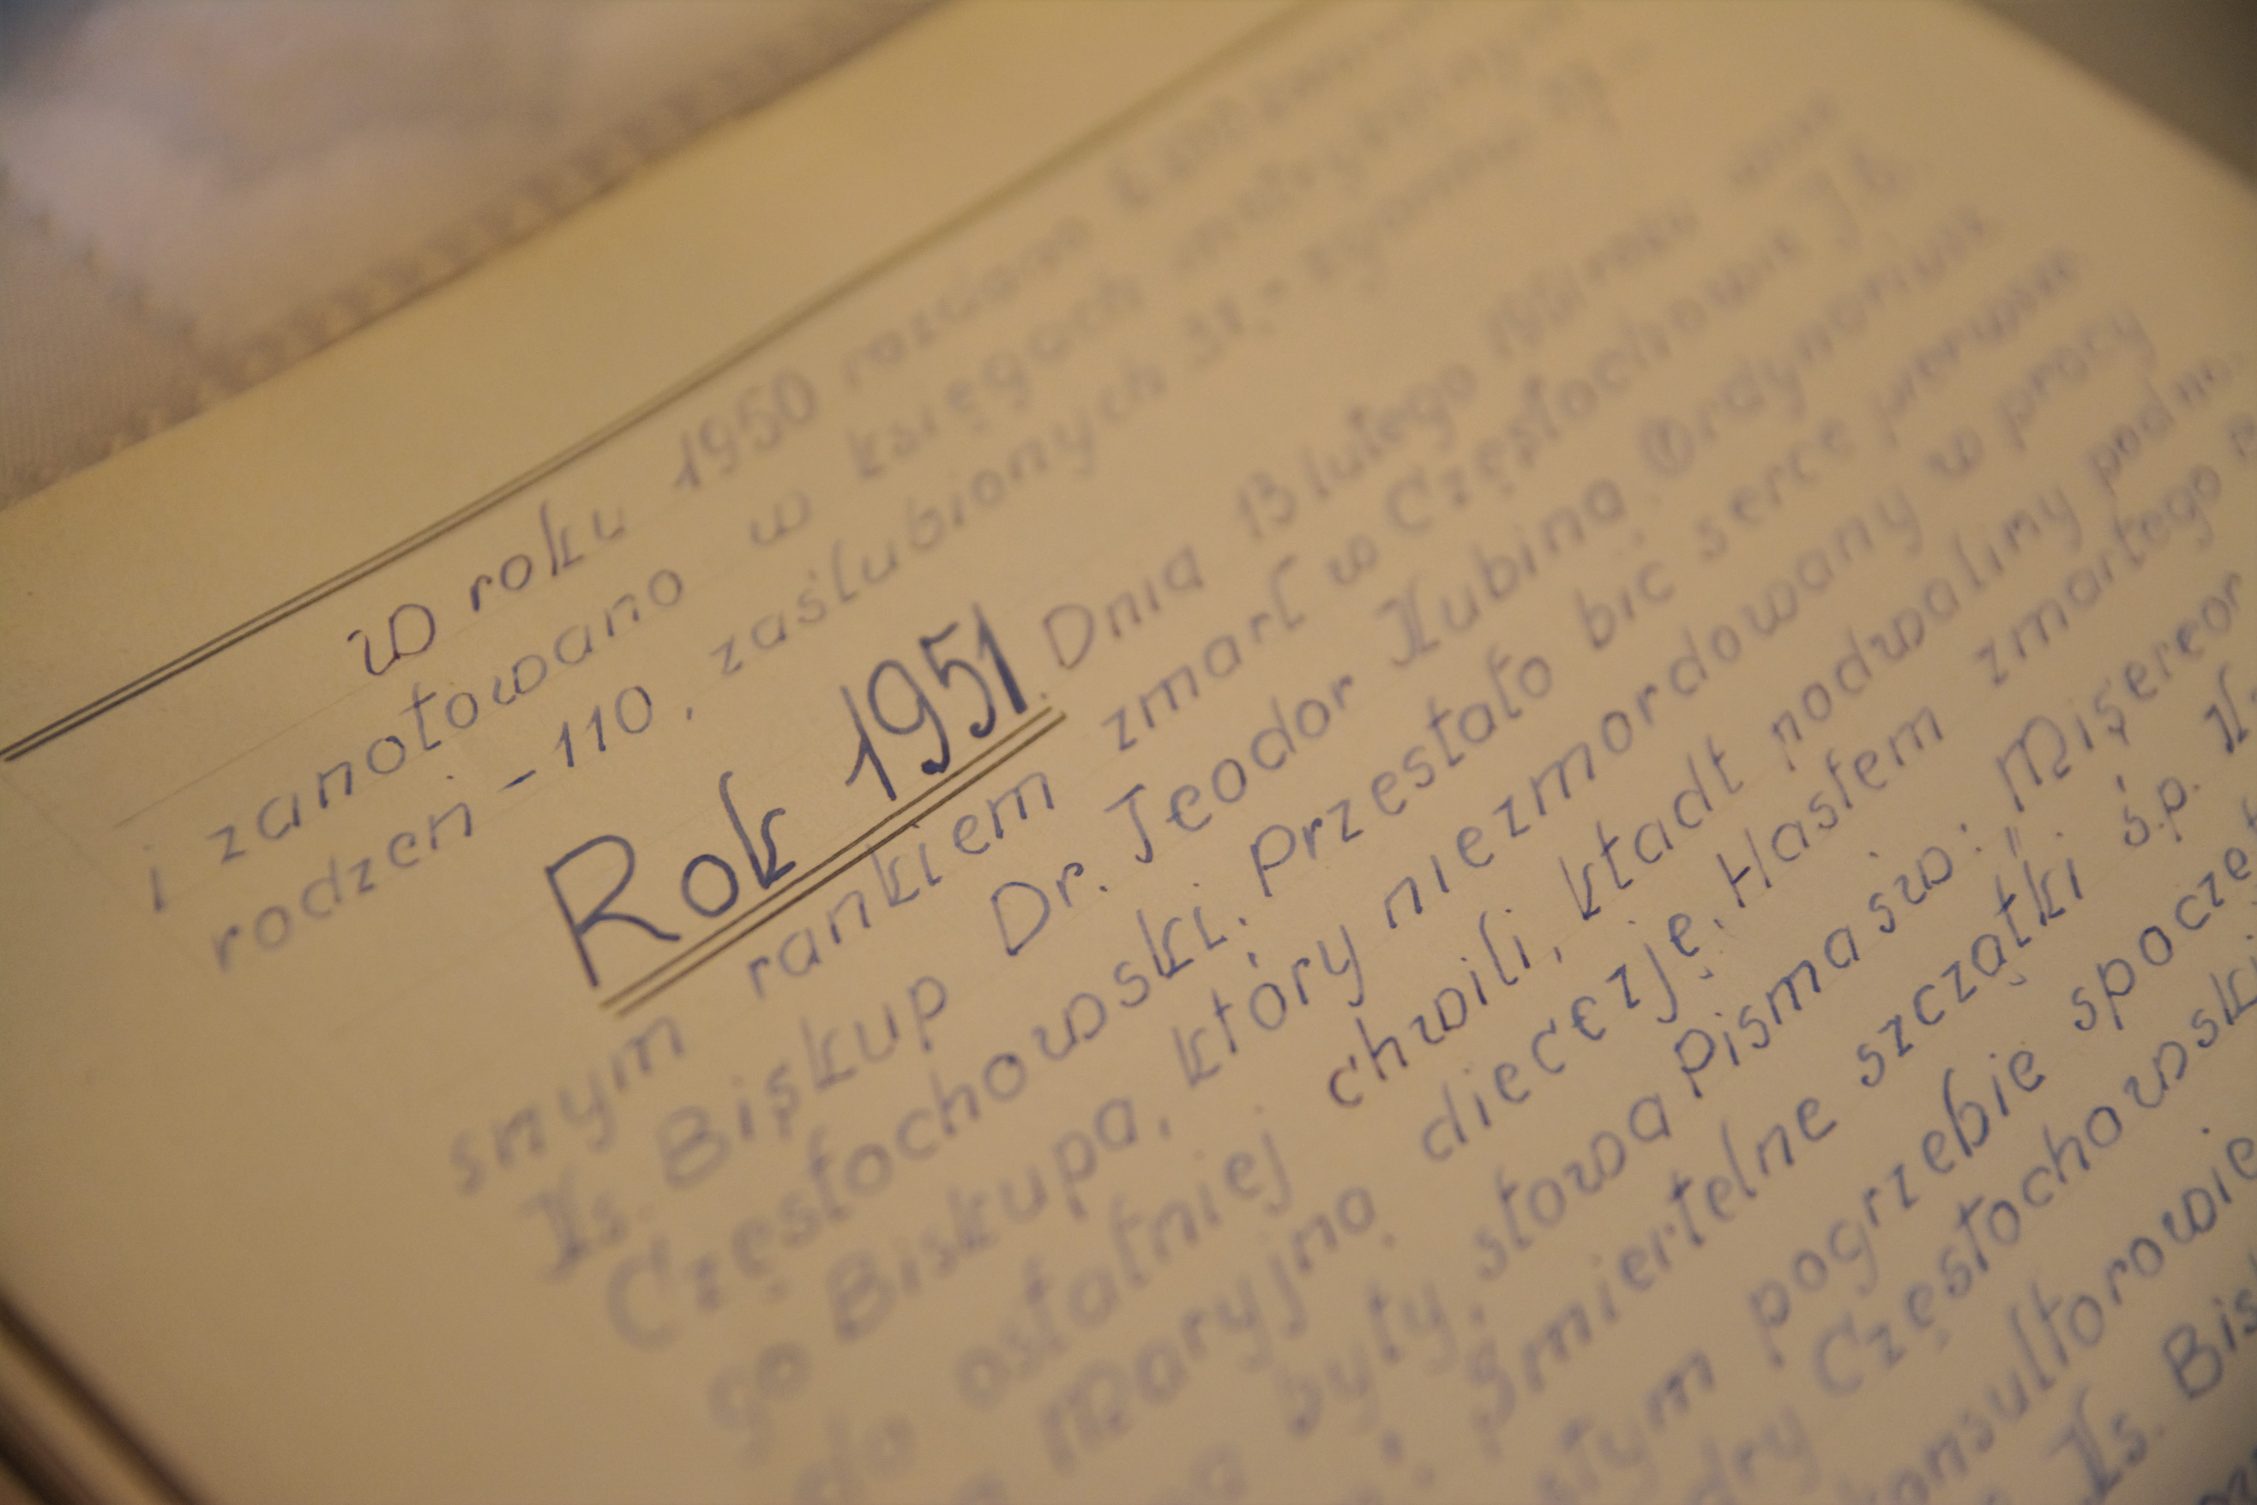 W roku 1950 rozdano
i zanotowano w księgach metrykalnych
rodzeń - 110, zaślubionych
Rok 1951. Dnia 13 lutego 1951 roku
snym rankiem zmarł w Częstochowie J.E.
Ks. Biskup Dr. Teodor Kubina, Ordynariusz
Częstochowski. Przestało bić serce pierwsze
go Biskupa, który niezmordowany w pracy
do ostatniej chwili, kładł podwaliny pod
Maryjną diecezję. Hasłem zmarłego
były słowa Pisma św: "Misereor
Śmiertelne szczątki ś.p. K
stym pogrzebie spoczę
dry Częstochowski
konsultorowie
Ks. Bis